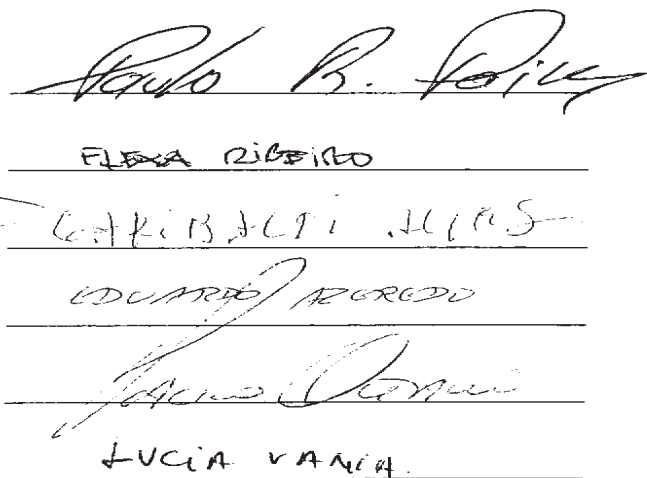 Paulo R.
FLEXA RIBEIRO
GARIBALDI ALVES
EDUARDO AZEREDO
LUCIA VANIA.